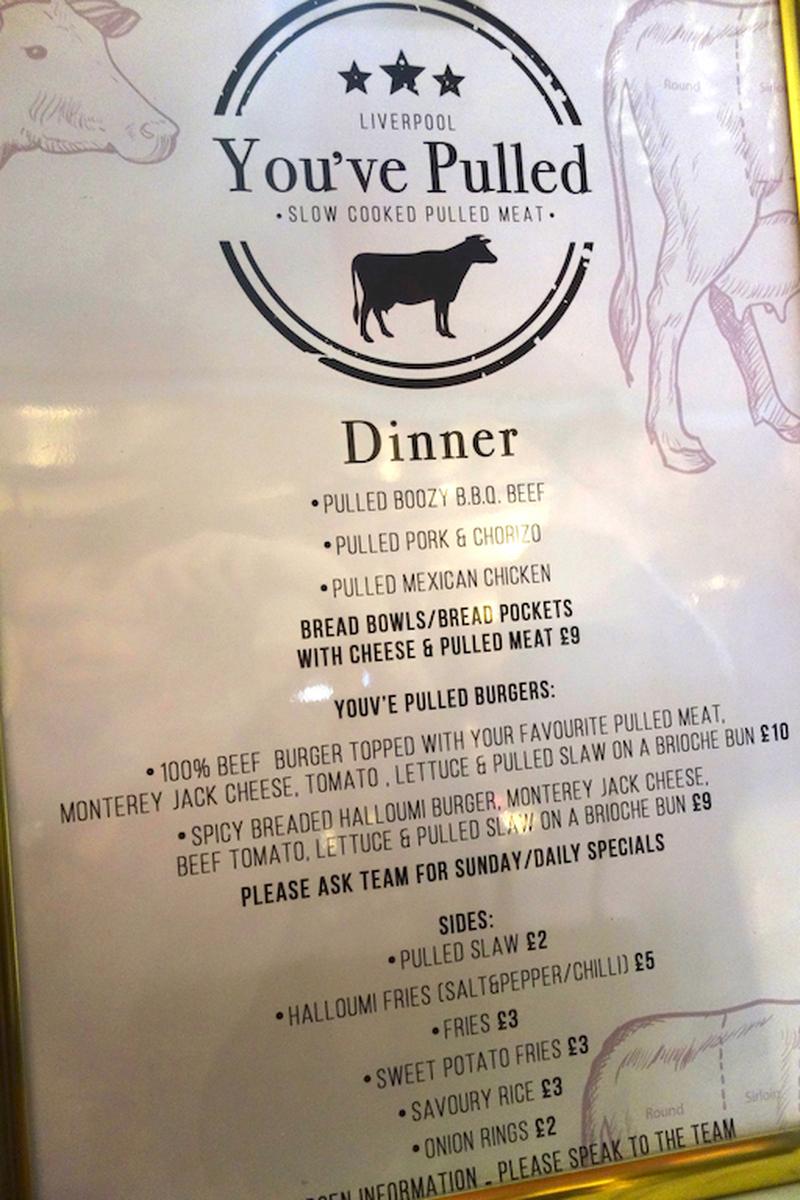 LIVERPOOL
You've Pulled
•SLOW COOKED PULLED MEAT•
Round
Dinner
•PULLED BOOZY B.B.Q. BEEF
•PULLED PORK & CHORIZO
•PULLED MEXICAN CHICKEN
BREAD BOWLS/BREAD POCKETS
WITH CHEESE & PULLED MEAT £9
YOUV'E PULLED BURGERS:
•100% BEEF BURGER TOPPED WITH YOUR FAVOURITE PULLED MEAT,
MONTEREY JACK CHEESE, TOMATO , LETTUCE & PULLED SLAW ON A BRIOCHE BUN £10
•SPICY BREADED HALLOUMI BURGER, MONTEREY JACK CHEESE,
BEEF TOMATO, LETTUCE & PULLED SLAW ON A BRIOCHE BUN £9
PLEASE ASK TEAM FOR SUNDAY/DAILY SPECIALS
SIDES:
•PULLED SLAW £2
•HALLOUMI FRIES (SALT&PEPPER/CHILLI) £5
•FRIES £3
•SWEET POTATO FRIES £3
•SAVOURY RICE £3
•ONION RINGS £2
Round
Sirloin
INFORMATION - PLEASE SPEAK TO THE TEAM